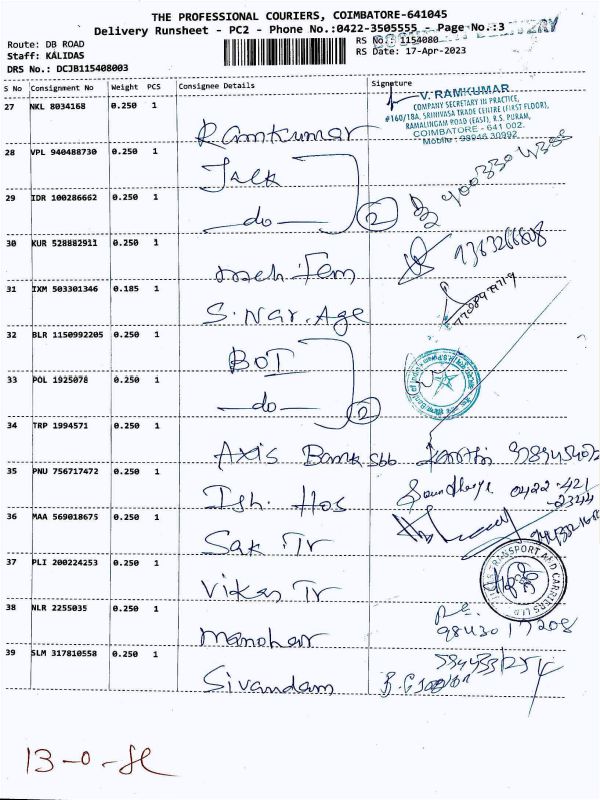 THE PROFESSIONAL COURIERS, COIMBATORE-641045
Delivery Runsheet - PC2 - Phone No.:0422-3505555 - Page No.:3
Route: DB ROAD
Staff: KÁLIDAS
DRS No.: DCJB115408003
RS No.: 1154080
RS Date: 17-Apr-2023
S No Consignment No Weight PCS Consignee Details Signature
27 NKL 8034168 0.250 1 Ramkumar
V. RAMKUMAR
COMPANY SECRETARY IN PRACTICE,
#160/18A, SRINIVASA TRADE CENTRE (FIRST FLOOR),
RAMALINGAM ROAD (EAST), R.S. PURAM,
COIMBATORE - 641 002.
Mobile: 98946 30992
28 VPL 940488730 0.250 1
29 IDR 100286662 0.250 1 do 2
30 KUR 528882911 0.250 1
31 IXM 503301346 0.185 1 S. Nar. Age
32 BLR 1150992205 0.250 1 BOT
33 POL 1925078 0.250 1 do 2
34 TRP 1994571 0.250 1 Axis Bank Sbb
35 PNU 756717472 0.250 1 Ish. Hos 0422-421
-2344
36 MAA 569018675 0.250 1 Sak Tr
37 PLI 200224253 0.250 1 Vikas Tr
TRANSPORT AND CARRIERS
38 NLR 2255035 0.250 1 Manohar
39 SLM 317810558 0.250 1 Sivandam
13-0-